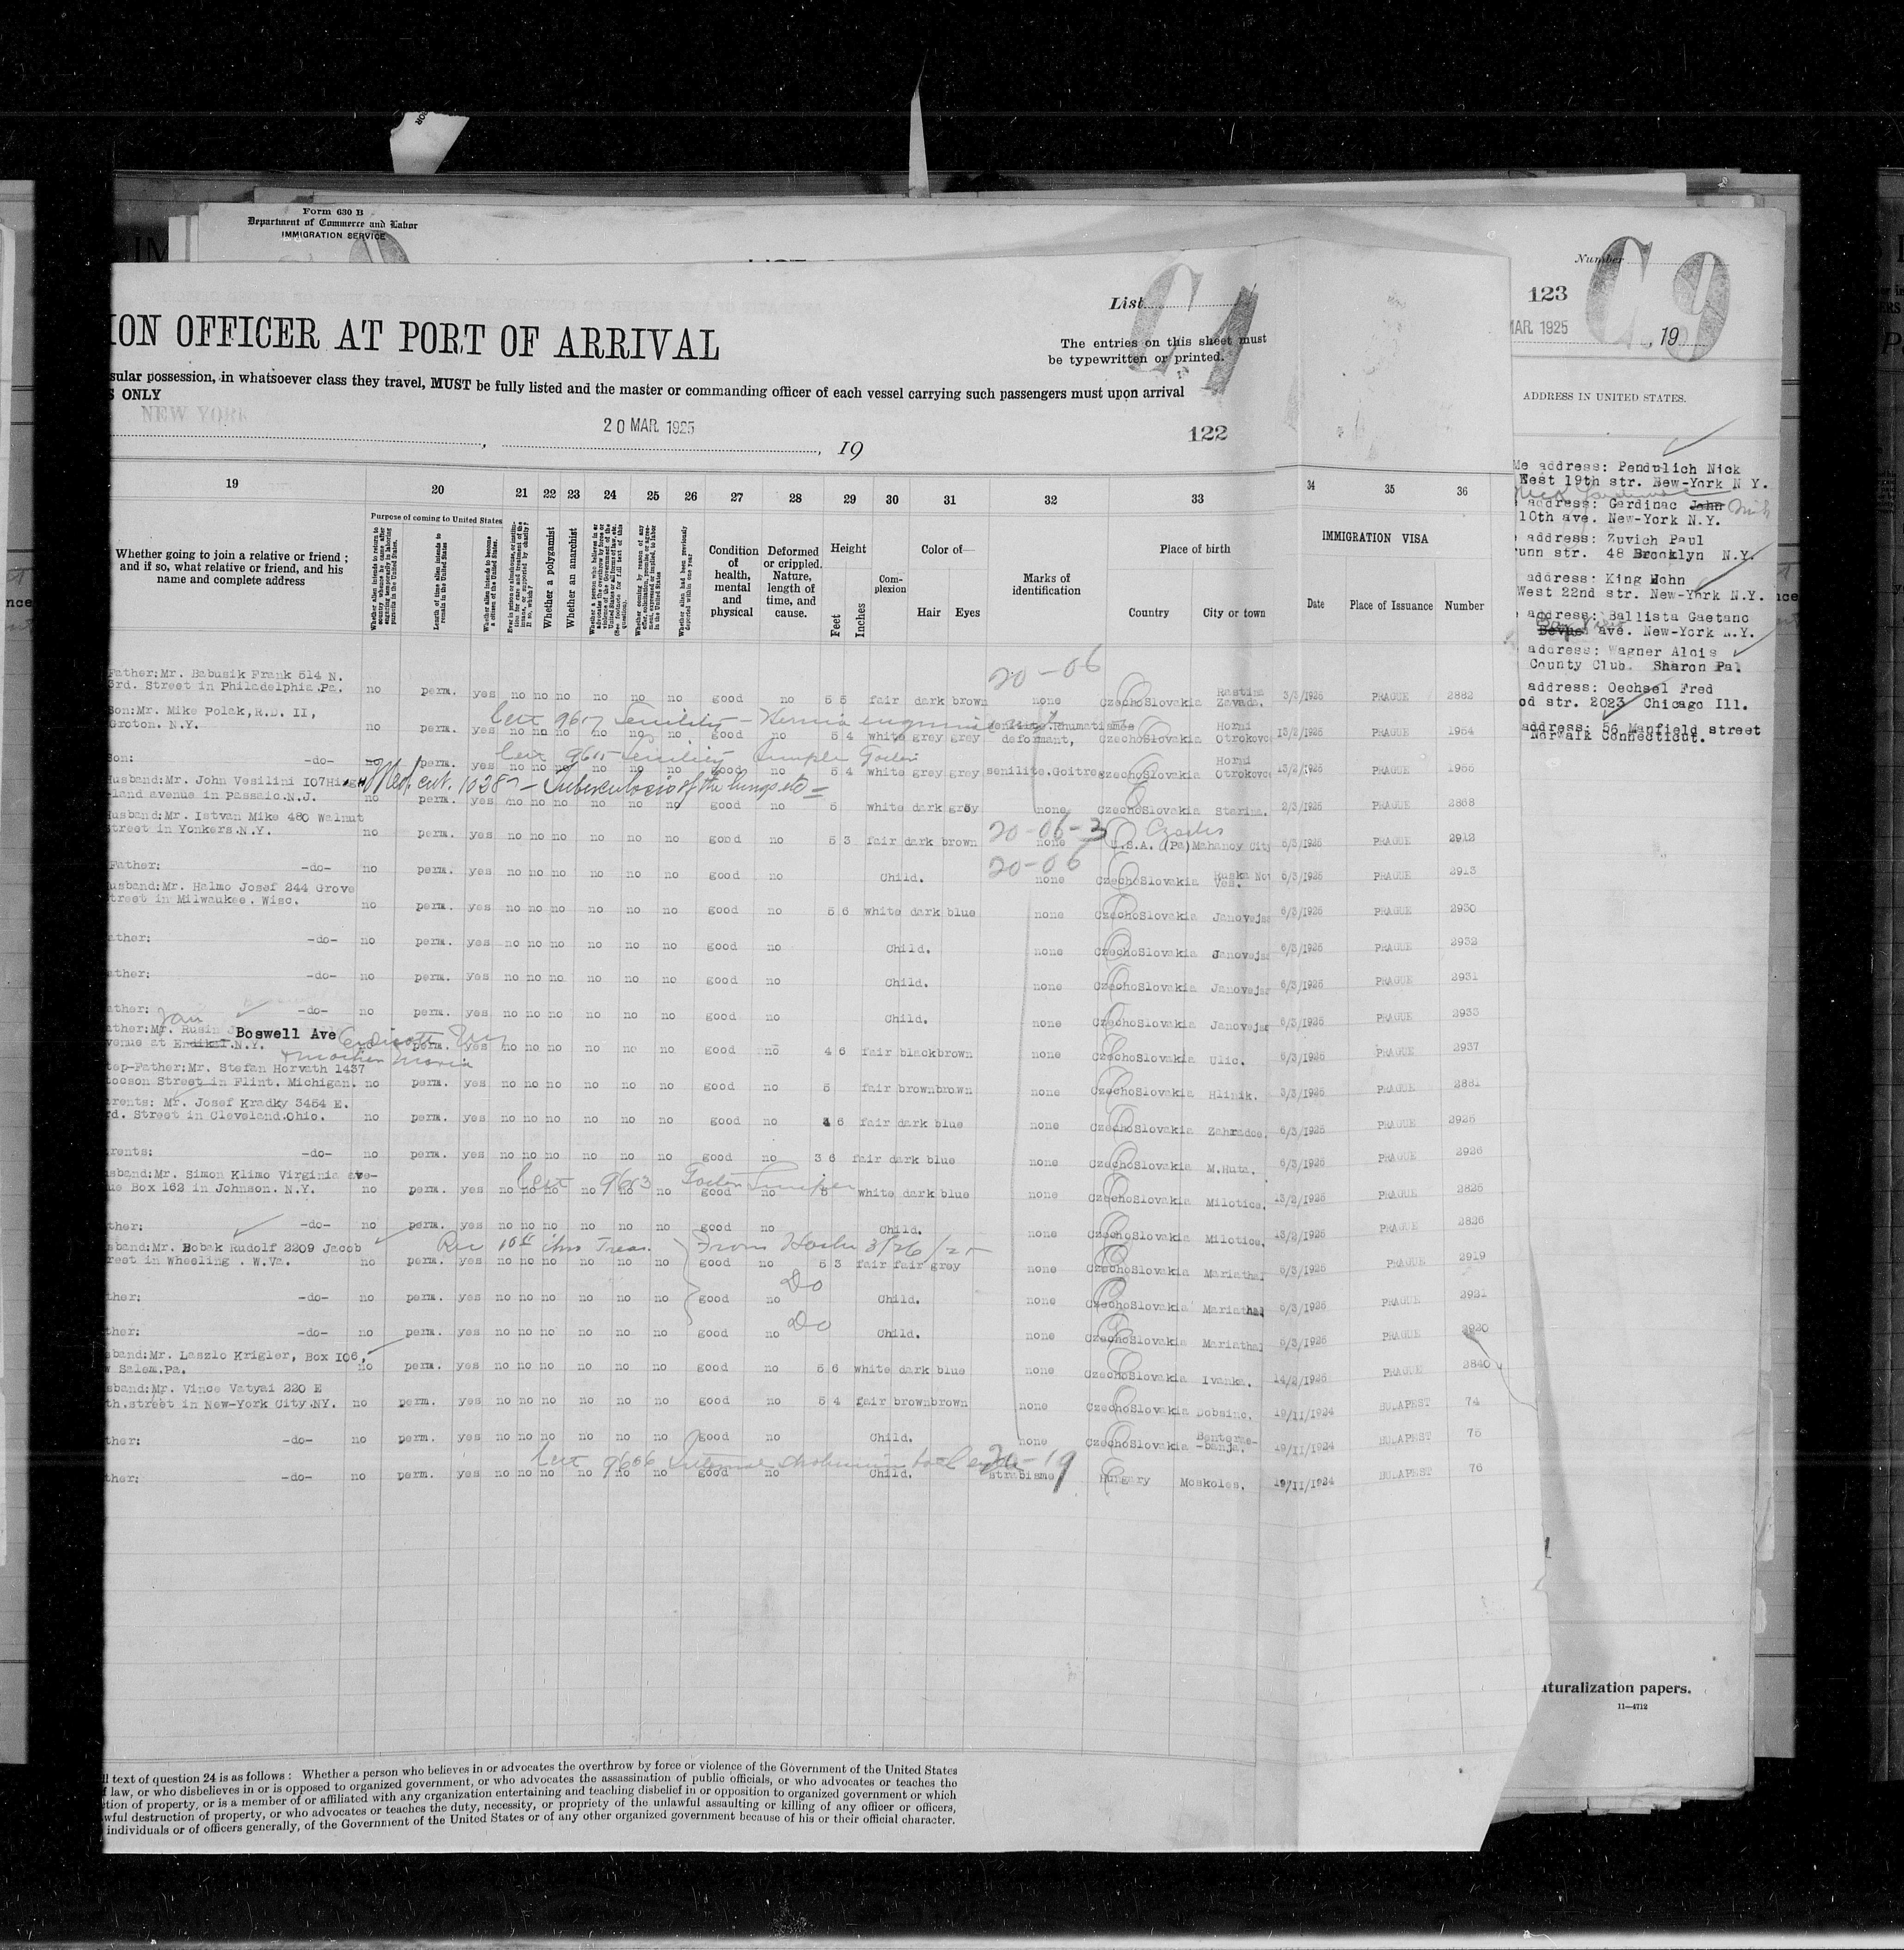 Form 630 B
Department of Commerce and Labor
IMMIGRATION SERVICE
ION OFFICER AT PORT OF ARRIVAL
List
The entries on this sheet must
be typewritten or printed.
sular possession, in whatsoever class they travel, MUST be fully listed and the master or commanding officer of each vessel carrying such passengers must upon arrival
S ONLY
NEW YORK
20 MAR. 1925
, 19
122
19 20 21 22 23 24 25 26 27 28 29 30 31 32 33 34 35 36
Whether going to join a relative or friend ;
and if so, what relative or friend, and his
name and complete address
Purpose of coming to United States
Whether a polygamist
Whether an anarchist
Condition of health, mental and physical
Deformed or crippled. Nature, length of time, and cause.
Height
Feet
Inches
Com-plexion
Color of—
Hair Eyes
Marks of identification
Place of birth
Country City or town
IMMIGRATION VISA
Date Place of Issuance Number
20-06
Father:Mr. Babusik Frank 514 N.
3rd. Street in Philadelphia.Pa. no perm. yes no no no no no no good no 5 5 fair dark brown none CzechoSlovakia Rastina Zavada. 3/3/1925 PRAGUE 2882
Son:Mr. Mike Polak,R.D. II,
Groton. N.Y. no perm. yes no no no no no no good no 5 4 white grey grey deformant, CzechoSlovakia Horni Otrokovc 13/2/1925 PRAGUE 1954
Son: -do- no perm. yes no no no no no no good no 5 4 white grey grey senilite.Goitre CzechoSlovakia Horni Otrokovc 13/2/1925 PRAGUE 1955
Med. cert. 10387 - Tuberculosis of the lungs etc
Husband:Mr. John Vesilini 107High
-land avenue in Passaic.N.J. no perm. yes no no no no no no good no 5 white dark grey none CzechoSlovakia Starina. 2/3/1925 PRAGUE 2868
Husband:Mr. Istvan Mike 480 Walnut
Street in Yonkers.N.Y. no perm. yes no no no no no no good no 5 3 fair dark brown none U.S.A. (Pa) Mahanoy City 5/3/1925 PRAGUE 2912
20-06-3
20-06
Father: -do- no perm. yes no no no no no no good no Child. none CzechoSlovakia Ruska Nov Ves. 6/3/1925 PRAGUE 2913
usband:Mr. Halmo Josef 244 Grove
treet in Milwaukee. Wisc. no perm. yes no no no no no no good no 5 6 white dark blue none CzechoSlovakia Janovejsc 6/3/1925 PRAGUE 2930
ather: -do- no perm. yes no no no no no no good no Child. none CzechoSlovakia Janovejsc 6/3/1925 PRAGUE 2932
ather: -do- no perm. yes no no no no no no good no Child. none CzechoSlovakia Janovejsc 6/3/1925 PRAGUE 2931
ather: -do- no perm. yes no no no no no no good no Child. none CzechoSlovakia Janovejsc 6/3/1925 PRAGUE 2933
ather:Mr. Rusin Boswell Ave Endicott
venue at Endikat.N.Y. no perm. yes no no no no no no good no 4 6 fair black brown none CzechoSlovakia Ulic. 6/3/1925 PRAGUE 2937
tep-Father:Mr. Stefan Horvath 1437
tocson Street in Flint. Michigan. no perm. yes no no no no no no good no 5 fair brown brown none CzechoSlovakia Hlinik. 3/3/1925 PRAGUE 2881
arents: Mr. Josef Kradky 3454 E.
rd. Street in Cleveland.Ohio. no perm. yes no no no no no no good no 4 6 fair dark blue none CzechoSlovakia Zahradce. 6/3/1925 PRAGUE 2925
rents: -do- no perm. yes no no no no no no good no 3 6 fair dark blue none CzechoSlovakia M.Huta. 6/3/1925 PRAGUE 2926
usband:Mr. Simon Klimo Virginia ave-
ue Box 162 in Johnson. N.Y. no perm. yes no no no no no no good no 5 white dark blue none CzechoSlovakia Milotice. 13/2/1925 PRAGUE 2825
ther: -do- no perm. yes no no no no no no good no Child. none CzechoSlovakia Milotice. 13/2/1925 PRAGUE 2826
From Hosp 3/26/25
sband:Mr. Bobak Rudolf 2209 Jacob
reet in Wheeling . W.Va. no perm. yes no no no no no no good no 5 3 fair fair grey none CzechoSlovakia Mariathal 6/3/1925 PRAGUE 2919
Do
ther: -do- no perm. yes no no no no no no good no Child. none CzechoSlovakia Mariathal 6/3/1925 PRAGUE 2921
Do
ther: -do- no perm. yes no no no no no no good no Child. none CzechoSlovakia Mariathal 6/3/1925 PRAGUE 2920
sband:Mr. Laszlo Krigler, Box 106,
w Salem.Pa. no perm. yes no no no no no no good no 5 6 white dark blue none CzechoSlovakia Ivanka. 14/2/1925 PRAGUE 2840
sband:Mr. Vince Vatyai 220 E
th.street in New-York City.NY. no perm. yes no no no no no no good no 5 4 fair brown brown none CzechoSlovakia Dobsinc. 19/11/1924 BUDAPEST 74
ther: -do- no perm. yes no no no no no no good no Child. none CzechoSlovakia -banja. 19/11/1924 BUDAPEST 75
ther: -do- no perm. yes no no no no no no good no Child. strabisme Hungary Moskoles. 19/11/1924 BUDAPEST 76
ll text of question 24 is as follows : Whether a person who believes in or advocates the overthrow by force or violence of the Government of the United States
f law, or who disbelieves in or is opposed to organized government, or who advocates the assassination of public officials, or who advocates or teaches the
ction of property, or is a member of or affiliated with any organization entertaining and teaching disbelief in or opposition to organized government or which
wful destruction of property, or who advocates or teaches the duty, necessity, or propriety of the unlawful assaulting or killing of any officer or officers,
individuals or of officers generally, of the Government of the United States or of any other organized government because of his or their official character.
Number
C9
123
MAR. 1925
, 19
ADDRESS IN UNITED STATES.
Me address: Pendulich Nick
East 19th str. New-York N Y.
address: Gardinac John
10th ave. New-York N.Y.
address: Zuvich Paul
unn str. 48 Brooklyn N.Y.
address: King Hohn
West 22nd str. New-York N.Y.
address: Ballista Gaetano
ave. New-York N.Y.
address: Wagner Alois
County Club. Sharon Pa.
address: Oechsel Fred
od str. 2023 Chicago Ill.
address: 56 Manfield street
Norwalk Connecticut.
aturalization papers.
11—4712